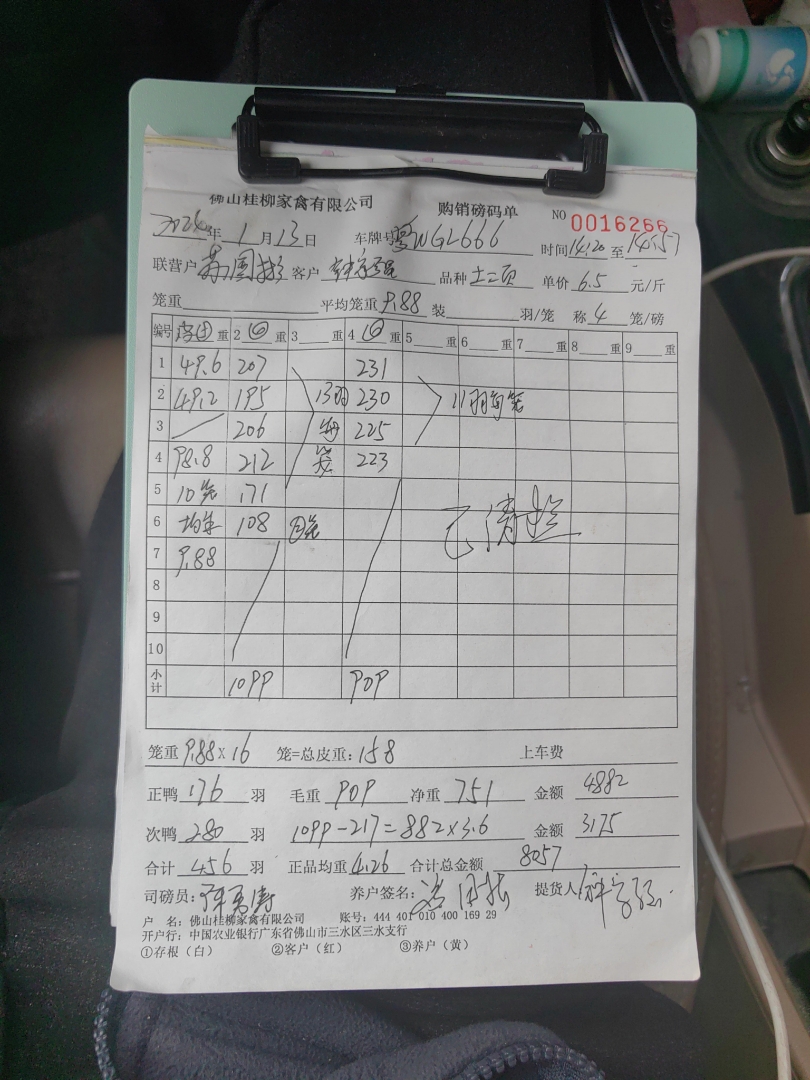 佛山桂柳家禽有限公司 购销磅码单 NO 0016266
2024年 1月13日 车牌号粤WGL666 时间14:20至14:57
联营户 客户 品种 土二项 单价 6.5 元/斤
笼重 平均笼重9.88 装 羽/笼 称 4 笼/磅
编号 重 2 重 3 重 4 重 5 重 6 重 7 重 8 重 9 重
1 49.6 207 231
2 49.2 195 13羽 230 11羽每笼
3 206 每 225
4 98.8 212 笼 223
5 10笼 171 已清
6 均单 108
7 9.88
8
9
10
小计 1099 909
笼重 9.88×16 笼=总皮重:158 上车费
正鸭 176 羽 毛重 909 净重 751 金额 4882
次鸭 280 羽 1099-217=882×3.6 金额 3175
合计 456 羽 正品均重 4.26 合计总金额 8057
司磅员: 养户签名: 提货人
户 名: 佛山桂柳家禽有限公司 账号: 444 401 010 400 169 29
开户行: 中国农业银行广东省佛山市三水区三水支行
①存根(白) ②客户(红) ③养户(黄)